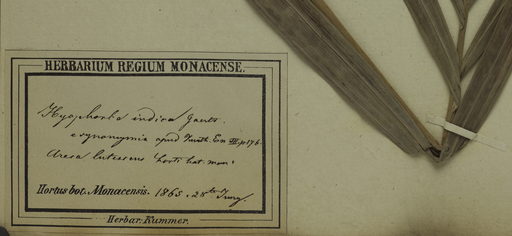 HERBARIUM REGIUM MONACENSE.
Hyophorbe indica Gaertn.
e synonymia apud Kunth. En. III. p. 176.
Areca lutescens hort. bot. mon.
Hortus bot. Monacensis. 1865. 28
Herbar. Kummer.